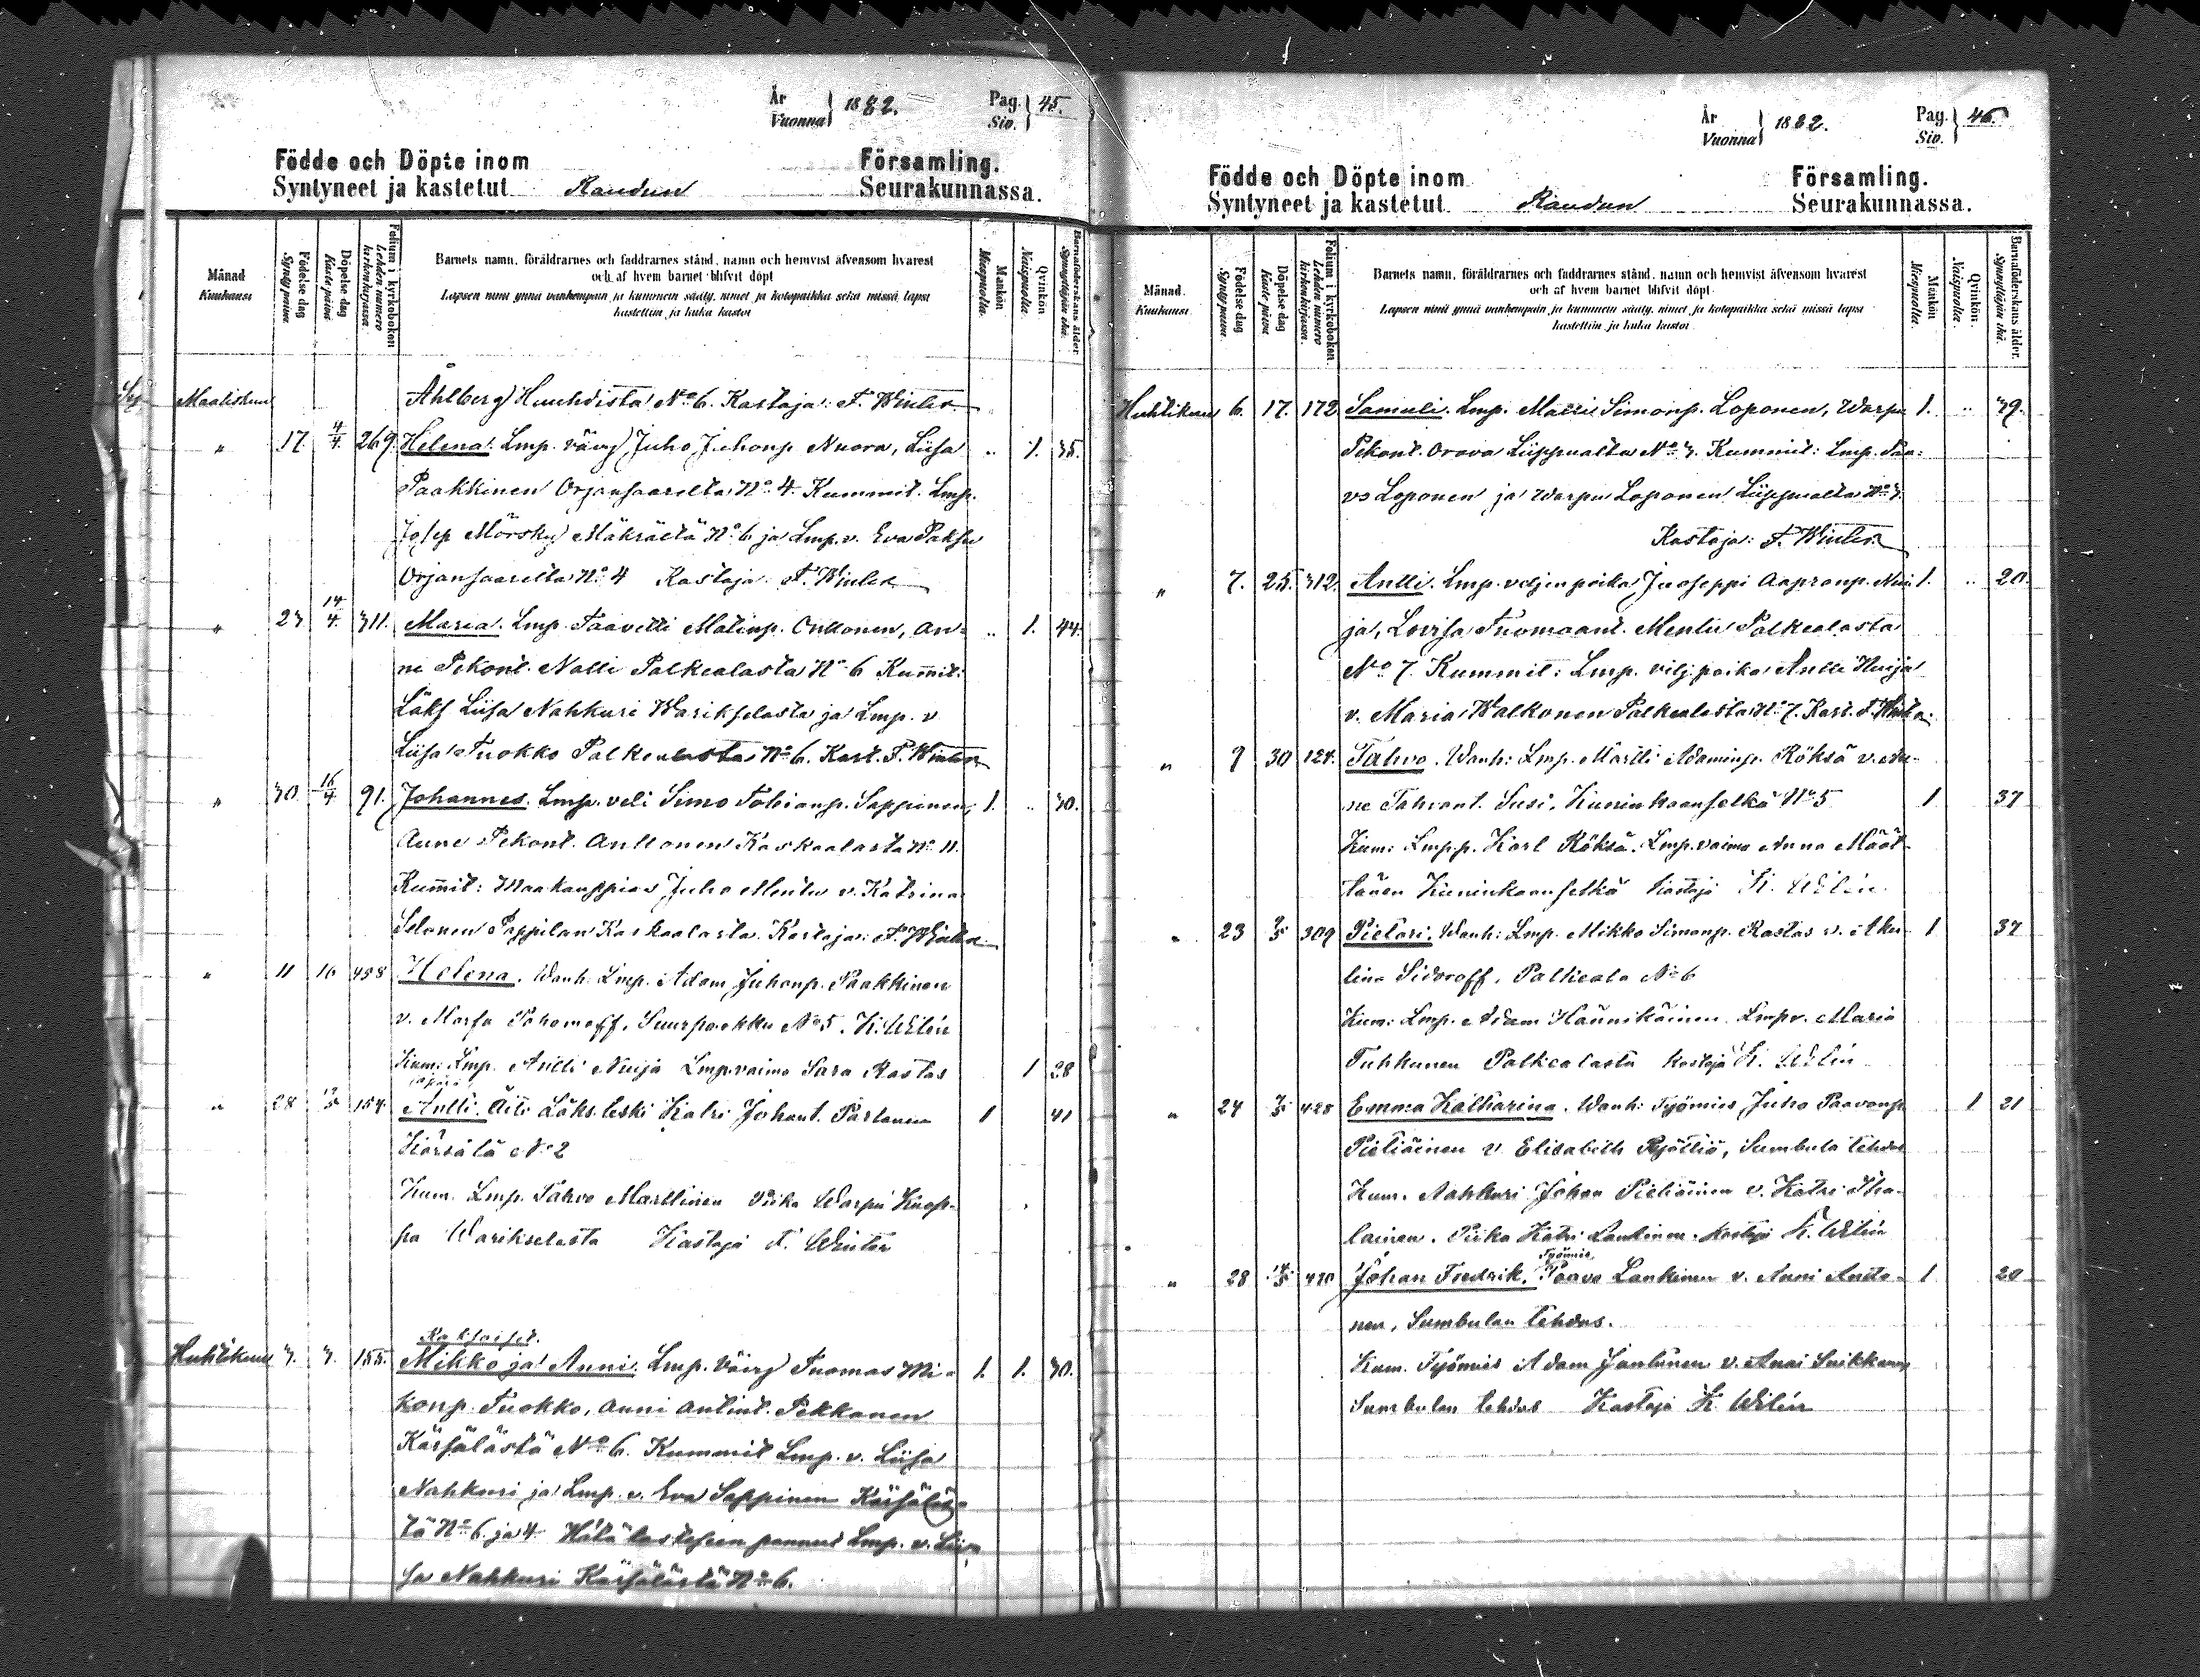 År
Vuonna } 1882.
Pag.
Siv. } 45.
Födde och Döpte inom Församling.
Syntyneet ja kastetut Raudun Seurakunnassa.
Månad
Kuukausi
Födelse dag
Syntypäivä
Döpelse dag
Kastepäivä
Folium i kyrkoboken
Lehden numero kirkonkirjassa.
Barnets namn, föräldrarnes och faddrarnes stånd, namn och hemvist äfvensom hvarest
och af hvem barnet blifvit döpt
Lapsen nimi ynnä vanhempain ja kummein sääty, nimet ja kotopaikka sekä missä lapsi
kastettiin ja kuka kastoi
Mankön
Miespuolia.
Qvinkön
Naispuolia
Barnaföderskans ålder.
Synnyttäjän ikä.
Maaliskuu Åhlberg Huuhdista No 6. Kastaja: F. Winter
" 17. 4/4. 269. Helena. Lmp. vävy Juho Juhonp Nuora, Liisa .. 1. 35.
Paakkinen Orjansaarelta No 4. Kummit. Lmp.
Josep Mörsky Mäkrältä No 6 ja Lmp. v. Eva Paksu
Orjansaarelta No 4 Kastaja F. Winter
" 23 14/4. 311. Maria. Lmp. Taavetti Matinp. Onttonen, An= .. 1. 44.
ne Pekont. Nalli Palkealasta No 6 Kummit:
Läks Liisa Nahkuri Warikselasta ja Lmp. v
Liisa Tuokko Palkealasta No 6. Kast. F. Winter
" 30. 16/4 91. Johannes. Lmp. veli Simo Tobianp. Sappinen, 1. .. 30.
Anne Pekont. Anttonen Kaskaalasta No 11.
Kummit: Maakauppias Juho Mentu v. Katrina
Selonen Pappilan Kaskaalasta. Kastaja: F. Winter
" 11 16 458 Helena. Wanh. Lmp. Adam Juhonp. Paakkinen
v. Marfa Pahomoff. Suurporkku No 5. K. Wilén
Kum: Lmp. Antti Nuija Lmp. vaimo Sara Rastas 1 28
" 28 154 Antti. Äiti Läks. leski Katri Johant. Partanen 1 41
Kärsälä No 2
Kum. Lmp. Tahvo Marttinen Piika Warpu Kuop-
pa Warikselasta Kastaja F. Winter
Kaksoiset.
Huhtikuu 3. 3. 155. Mikko ja Anni. Lmp. vävy Tuomas Mi= 1. 1. 30.
konp. Tuokko, Anni Antint. Pekkanen
Kärsälästä No 6. Kummit Lmp. v. Liisa
Nahkuri ja Lmp. v. Eva Sappinen Kärsäläs=
tä No 6 ja 4 Hätä kasteseen pannut Lmp. v. Lii=
sa Nahkuri Kärsälästä No 6.
År
Vuonna } 1882.
Pag.
Siv. } 46.
Födde och Döpte inom Församling.
Syntyneet ja kastetut Raudun Seurakunnassa.
Månad.
Kuukausi
Födelse dag
Syntypäivä.
Döpelse dag
Kastepäivä
Folium i kyrkoboken
Lehden numero kirkonkirjassa.
Barnets namn, föräldrarnes och faddrarnes stånd, namn och hemvist äfvensom hvarest
och af hvem barnet blifvit döpt
Lapsen nimi ynnä vanhempain ja kummein sääty, nimet ja kotopaikka sekä missä lapsi
kastettiin ja kuka kastoi
Mankön
Miespuolia.
Qvinkön.
Naispuolia.
Barnaföderskans ålder.
Synnyttäjän ikä.
Huhtikuu 6. 17. 172 Samuli. Lmp. Matti Simonp. Loponen, Warpu 1. .. 39.
Pekont. Orava Liippualta No 3. Kummit: Lmp. Paa=
vo Loponen ja Warpu Loponen Liippualta No 3.
Kastaja: F. Winter
" 7. 25. 312. Antti. Lmp. veljen poika Juoseppi Aapronp. Nui 1. .. 20.
ja, Lovisa Tuomaant. Mentu Palkealasta
No 7. Kummit: Lmp. velj. poika Antti Nuija
v. Maria Walkonen Palkealasta No 7. Kast. F. Winter.
" 9 30 124. Tahvo. Wanh: Lmp. Martti Adaminp. Röksä v. An-
ne Tahvont. Susi, Kuninkaanselkä No 5 1 37
Kum: Lmp. p. Karl Röksä. Lmp. vaimo Anna Määt-
tänen Kuninkaanselkä Kastaja K. Wilén
" 23 309 Pietari. Wanh: Lmp. Mikko Simonp. Rastas v. Aku- 1 37
lina Sidoroff, Palkeala No 6
Kum: Lmp. Adam Hännikäinen Lmp. v. Maria
Tuhkunen Palkealasta Kastaja K. Wilén
" 24 428 Emma Katharina. Wanh: Työmies Juho Paavonp 1 21
Pietiäinen v. Elisabeth Pyöttiö, Sumbula tehdas
Kum. Nahkuri Johan Pietiäinen v. Katri Iha-
lainen. Piika Katri Lankinen. Kastaja K. Wilén
Työmies
" 28 14/5 420 Johan Fredrik. Paavo Lankinen v. Anni Antto- 1 20
nen, Sumbulan tehdas.
Kum. Työmies Adam Jantunen v. Anni Suikkanen
Sumbulan tehdas Kastaja K Wilén